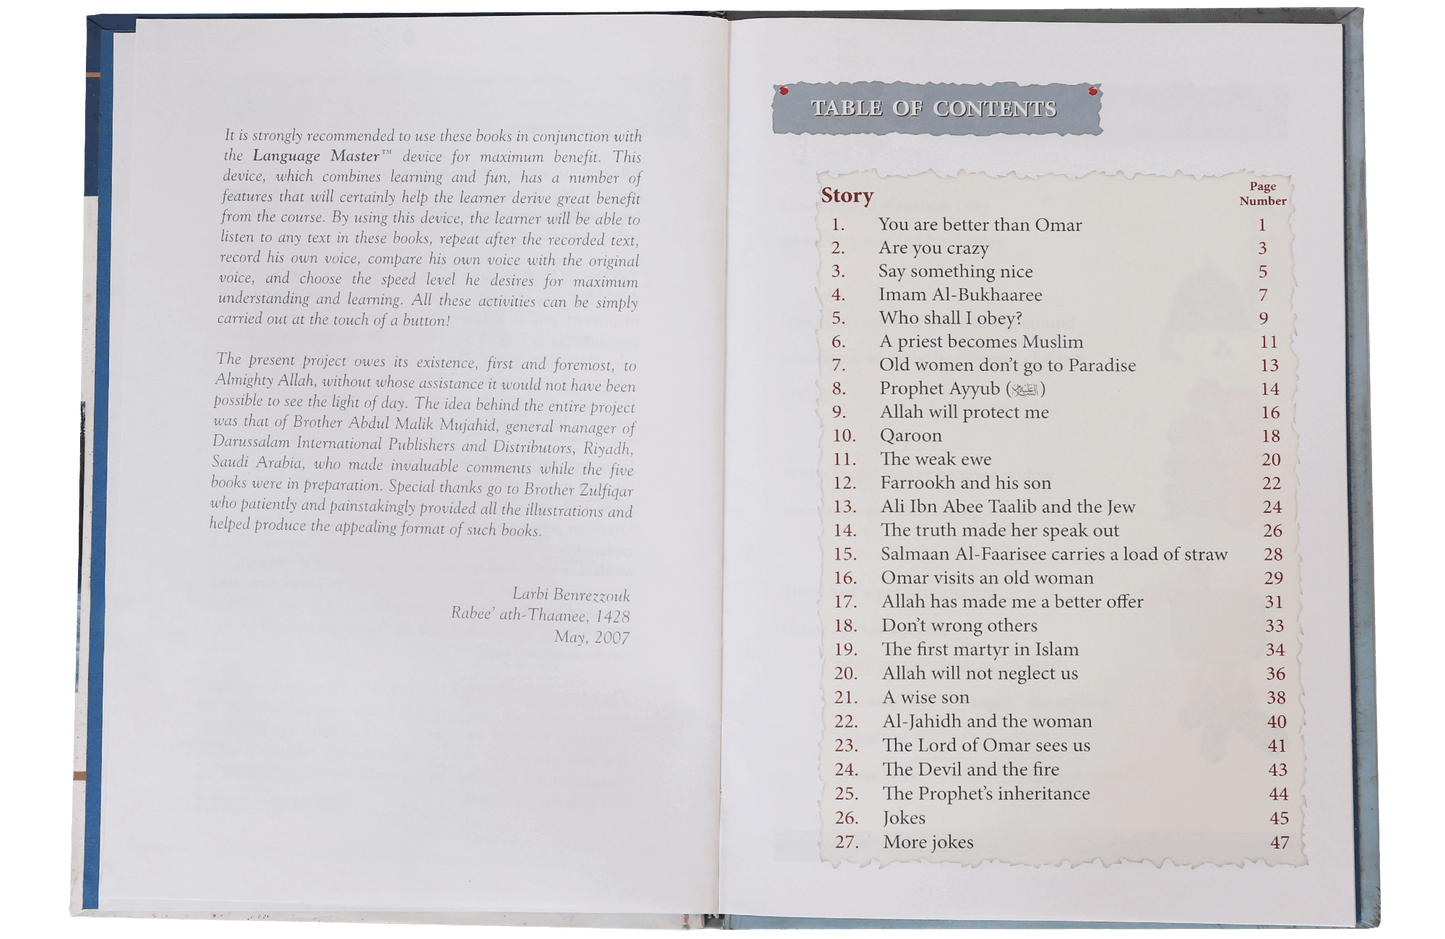 It is strongly recommended to use these books in conjunction with
the Language Master™ device for maximum benefit. This
device, which combines learning and fun, has a number of
features that will certainly help the learner derive great benefit
from the course. By using this device, the learner will be able to
listen to any text in these books, repeat after the recorded text,
record his own voice, compare his own voice with the original
voice, and choose the speed level he desires for maximum
understanding and learning. All these activities can be simply
carried out at the touch of a button!
The present project owes its existence, first and foremost, to
Almighty Allah, without whose assistance it would not have been
possible to see the light of day. The idea behind the entire project
was that of Brother Abdul Malik Mujahid, general manager of
Darussalam International Publishers and Distributors, Riyadh,
Saudi Arabia, who made invaluable comments while the five
books were in preparation. Special thanks go to Brother Zulfiqar
who patiently and painstakingly provided all the illustrations and
helped produce the appealing format of such books.
Larbi Benrezzouk
Rabee' ath-Thaanee, 1428
May, 2007
TABLE OF CONTENTS
Story Page Number
1. You are better than Omar 1
2. Are you crazy 3
3. Say something nice 5
4. Imam Al-Bukhaaree 7
5. Who shall I obey? 9
6. A priest becomes Muslim 11
7. Old women don't go to Paradise 13
8. Prophet Ayyub () 14
9. Allah will protect me 16
10. Qaroon 18
11. The weak ewe 20
12. Farrookh and his son 22
13. Ali Ibn Abee Taalib and the Jew 24
14. The truth made her speak out 26
15. Salmaan Al-Faarisee carries a load of straw 28
16. Omar visits an old woman 29
17. Allah has made me a better offer 31
18. Don't wrong others 33
19. The first martyr in Islam 34
20. Allah will not neglect us 36
21. A wise son 38
22. Al-Jahidh and the woman 40
23. The Lord of Omar sees us 41
24. The Devil and the fire 43
25. The Prophet's inheritance 44
26. Jokes 45
27. More jokes 47